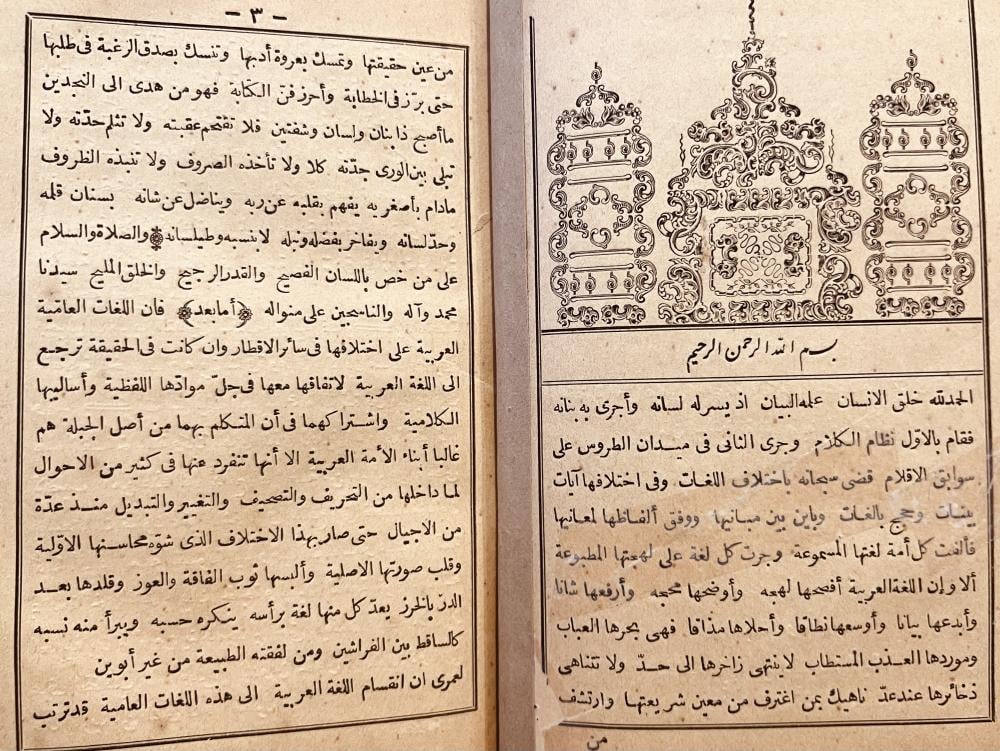 بسم الله الرحمن الرحيم
الحمدلله خلق الانسان علمه البيان اذ يسر له لسانه وأجرى به بنانه
فقام بالاوّل نظام الكلام وجرى الثانى فى ميدان الطروس على
سوابق الاقلام قضى سبحانه باختلاف اللغات وفى اختلافها آيات
بينات وحجج بالغات وباين بين مبانيها ووفق ألفاظها لمعانيها
فألفت كل أمة لغتها المسموعة وجرت كل لغة على لهجتها المطبوعة
ألا وإن اللغة العربية أفصحها لهجه وأوضحها محجه وأرفعها شانا
وأبدعها بيانا وأوسعها نطاقا وأحلاها مذاقا فهى بحرها العباب
وموردها العذب المستطاب لا ينتهى زاخرها الى حدّ ولا تتناهى
ذخائرها عند عدّ ناهيك بمن اغترف من معين شريعتها وارتشف
من
— ٣ —
من عين حقيقتها وتمسك بعروة أدبها وتنسك بصدق الرغبة فى طلبها
حتى برّز فى الخطابة وأحرز فنّ الكتابة فهو من هدى الى النجدين
ما أصبح ذا بنان ولسان وشفتين فلا تقتحم عقبته ولا تثلم حدّته ولا
تبلى بين الورى جدّته كلا ولا تأخذه الصروف ولا تنبذه الظروف
مادام بأصغريه يفهم بقلبه عن ربه ويناضل عن شانه بسنان قلمه
وحدّ لسانه ويفاخر بفضله ونبله لا بنسبه وطيلسانه والصلاة والسلام
على من خص باللسان الفصيح والقدر الرجيح والخلق المليح سيدنا
محمد وآله والناسجين على منواله ﴿أما بعد﴾ فان اللغات العامية
العربية على اختلافها فى سائر الاقطار وان كانت فى الحقيقة ترجع
الى اللغة العربية لاتفاقها معها فى جلّ موادّها اللفظية وأساليبها
الكلامية واشتراكهما فى أن المتكلم بهما من أصل الجبلة هم
غالبا أبناء الأمة العربية الا أنها تنفرد عنها فى كثير من الاحوال
لما داخلها من التحريف والتصحيف والتغيير والتبديل منذ عدّة
من الاجيال حتى صار بهذا الاختلاف الذى شوّه محاسنها الاوّلية
وقلب صورتها الاصلية وألبسها ثوب الفاقة والعوز وقلدها بعد
الدرّ بالخرز يعدّ كل منها لغة برأسه ينكره حسبه ويبرأ منه نسبه
كالساقط بين الفراشين ومن لفقته الطبيعة من غير أبوين
لعمرى ان انقسام اللغة العربية الى هذه اللغات العامية قد ترتب